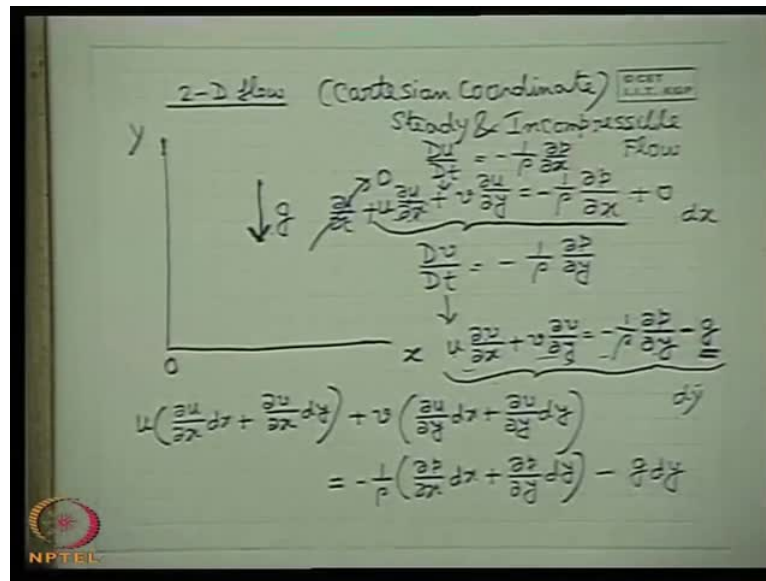 2-D flow (Cartesian Coordinate)
© CET
I.I.T. KGP
Steady & Incompressible Flow
Y
↓ g
Du/Dt = -1/ρ ∂p/∂x
∂u/∂t → 0 + u ∂u/∂x + v ∂u/∂y = -1/ρ ∂p/∂x + 0
dx
Dv/Dt = -1/ρ ∂p/∂y
↓
0
x
u ∂v/∂x + v ∂v/∂y = -1/ρ ∂p/∂y - g
dy
u(∂u/∂x dx + ∂v/∂x dy) + v(∂u/∂y dx + ∂v/∂y dy)
= -1/ρ (∂p/∂x dx + ∂p/∂y dy) - g dy
NPTEL